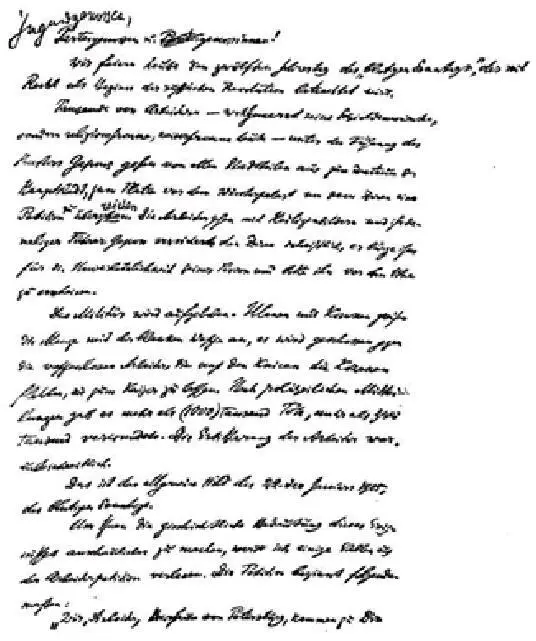 Jugendgenossen,
Parteigenossen u. Parteigenossinnen!
Wir feiern heute den zwölften Jahrestag des „Blutigen Sonntags", der mit
Recht als Beginn der russischen Revolution betrachtet wird.
Tausende von Arbeitern — wohlgemerkt keine Sozialdemokraten,
sondern religionsfromme, kaisertreue Leute — unter der Führung des
Priesters Gapons gehen von allen Stadtteilen aus zum Zentrum der
Hauptstadt, zum Platze vor dem Winterpalast um dem Zaren eine
Petition zu übergeben. Die Arbeiter gehen mit Heiligenbildern und ihr
maliger Führer Gapon versicherte dem Zaren schriftlich, er bürge ihm
für die Unverletzlichkeit seiner Person und bitte ihn vor dem Volke
zu erscheinen.
Das Militär wird aufgeboten. Ulanen und Kosaken greifen
die Menge mit der blanken Waffe an, es wird geschossen gegen
die waffenlosen Arbeiter, die auf den Knieen die Kosaken
flehten, sie zum Kaiser zu lassen. Nach polizeilichen Mittei-
lungen gab es mehr als (1000) tausend Tote, mehr als zwei
tausend verwundete. Die Erbitterung der Arbeiter war
unbeschreiblich.
Das ist das allgemeine Bild des 22. des Januars 1905,
des Blutigen Sonntags.
Um Ihnen die geschichtliche Bedeutung dieses Ereig-
nisses anschaulicher zu machen, werde ich einige Stellen aus
der Arbeiterpetition verlesen. Die Petition beginnt folgender-
massen:
„Wir, Arbeiter, Bewohner von Petersburg, kommen zu Dir.